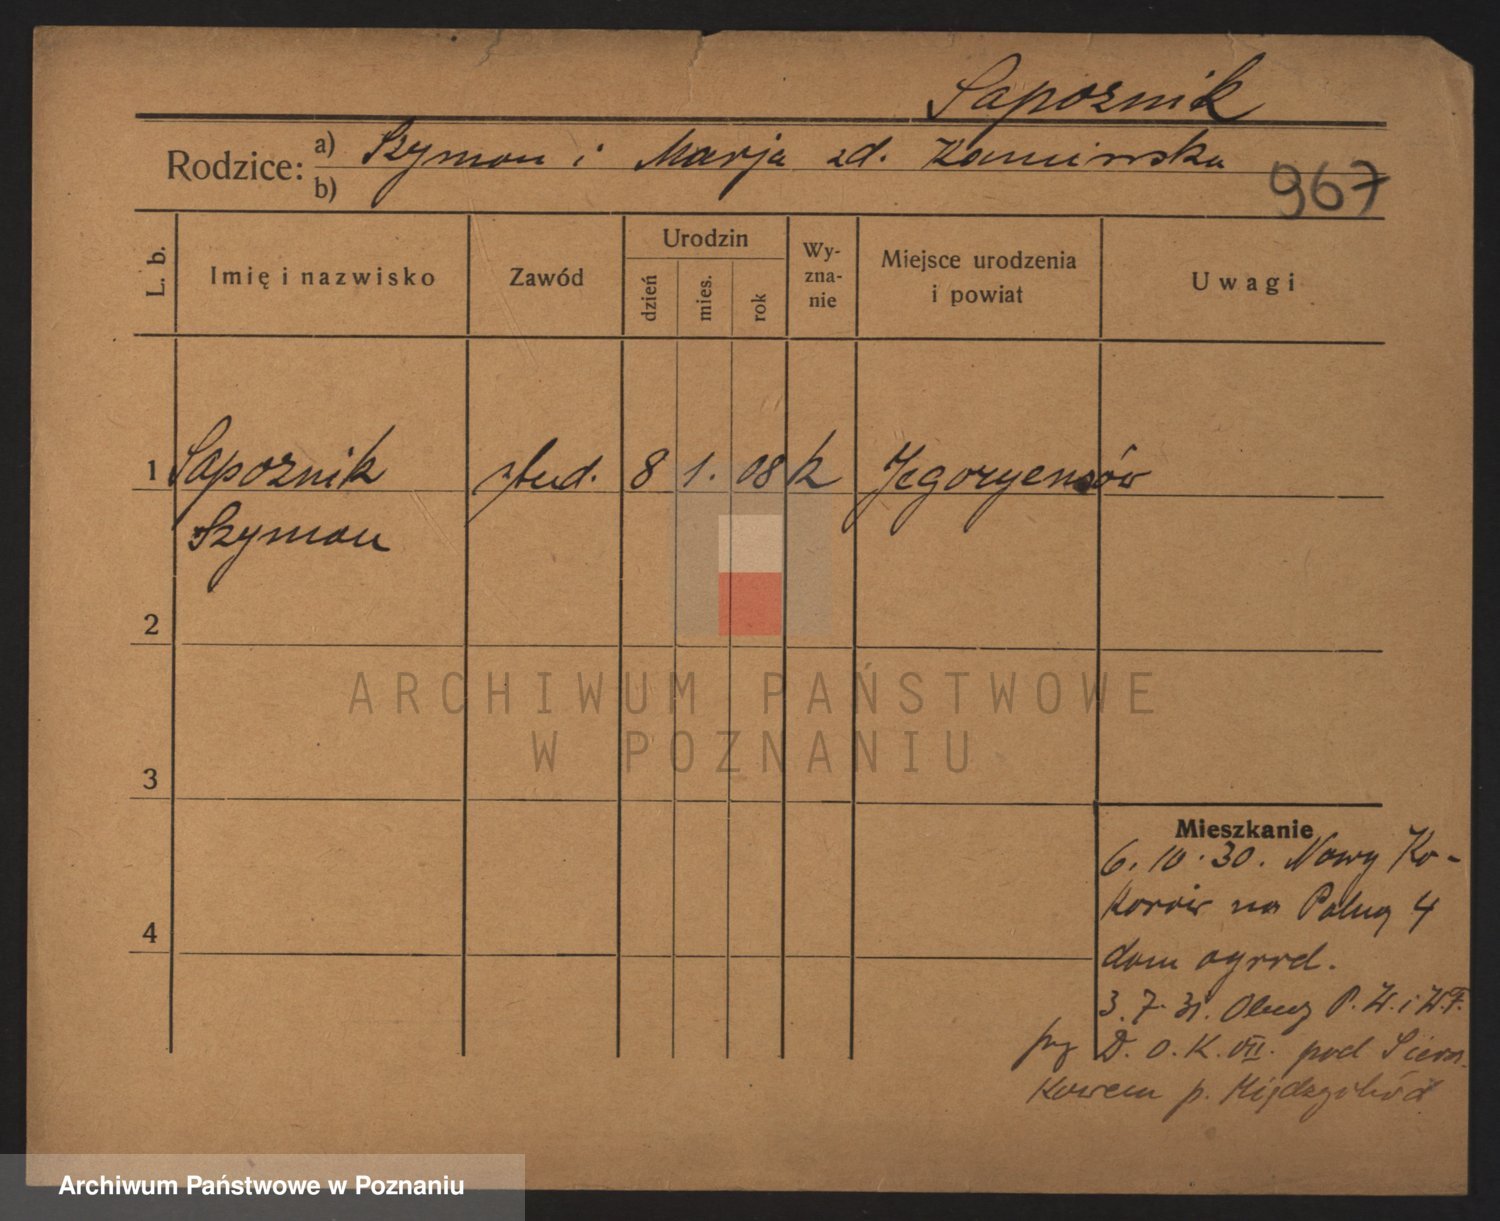 Sapoznik
Rodzice: a) Szymon i Marja zd. Kaminska
b)
967
L. b.
Imię i nazwisko
Zawód
Urodzin
dzień
mies.
rok
Wy-
zna-
nie
Miejsce urodzenia
i powiat
Uwagi
1 Sapoznik stud. 8 1. 08 k
Szymon
2
3
4
Mieszkanie
6. 10. 30. Nowy Ko-
na 4
dom ogrod.
3. 7. 31. Obóz P. W. i W. F.
przy D. O. K. VII. pod Siera-
kowem p. Międzychód
ARCHIWUM PAŃSTWOWE
W POZNANIU
Archiwum Państwowe w Poznaniu